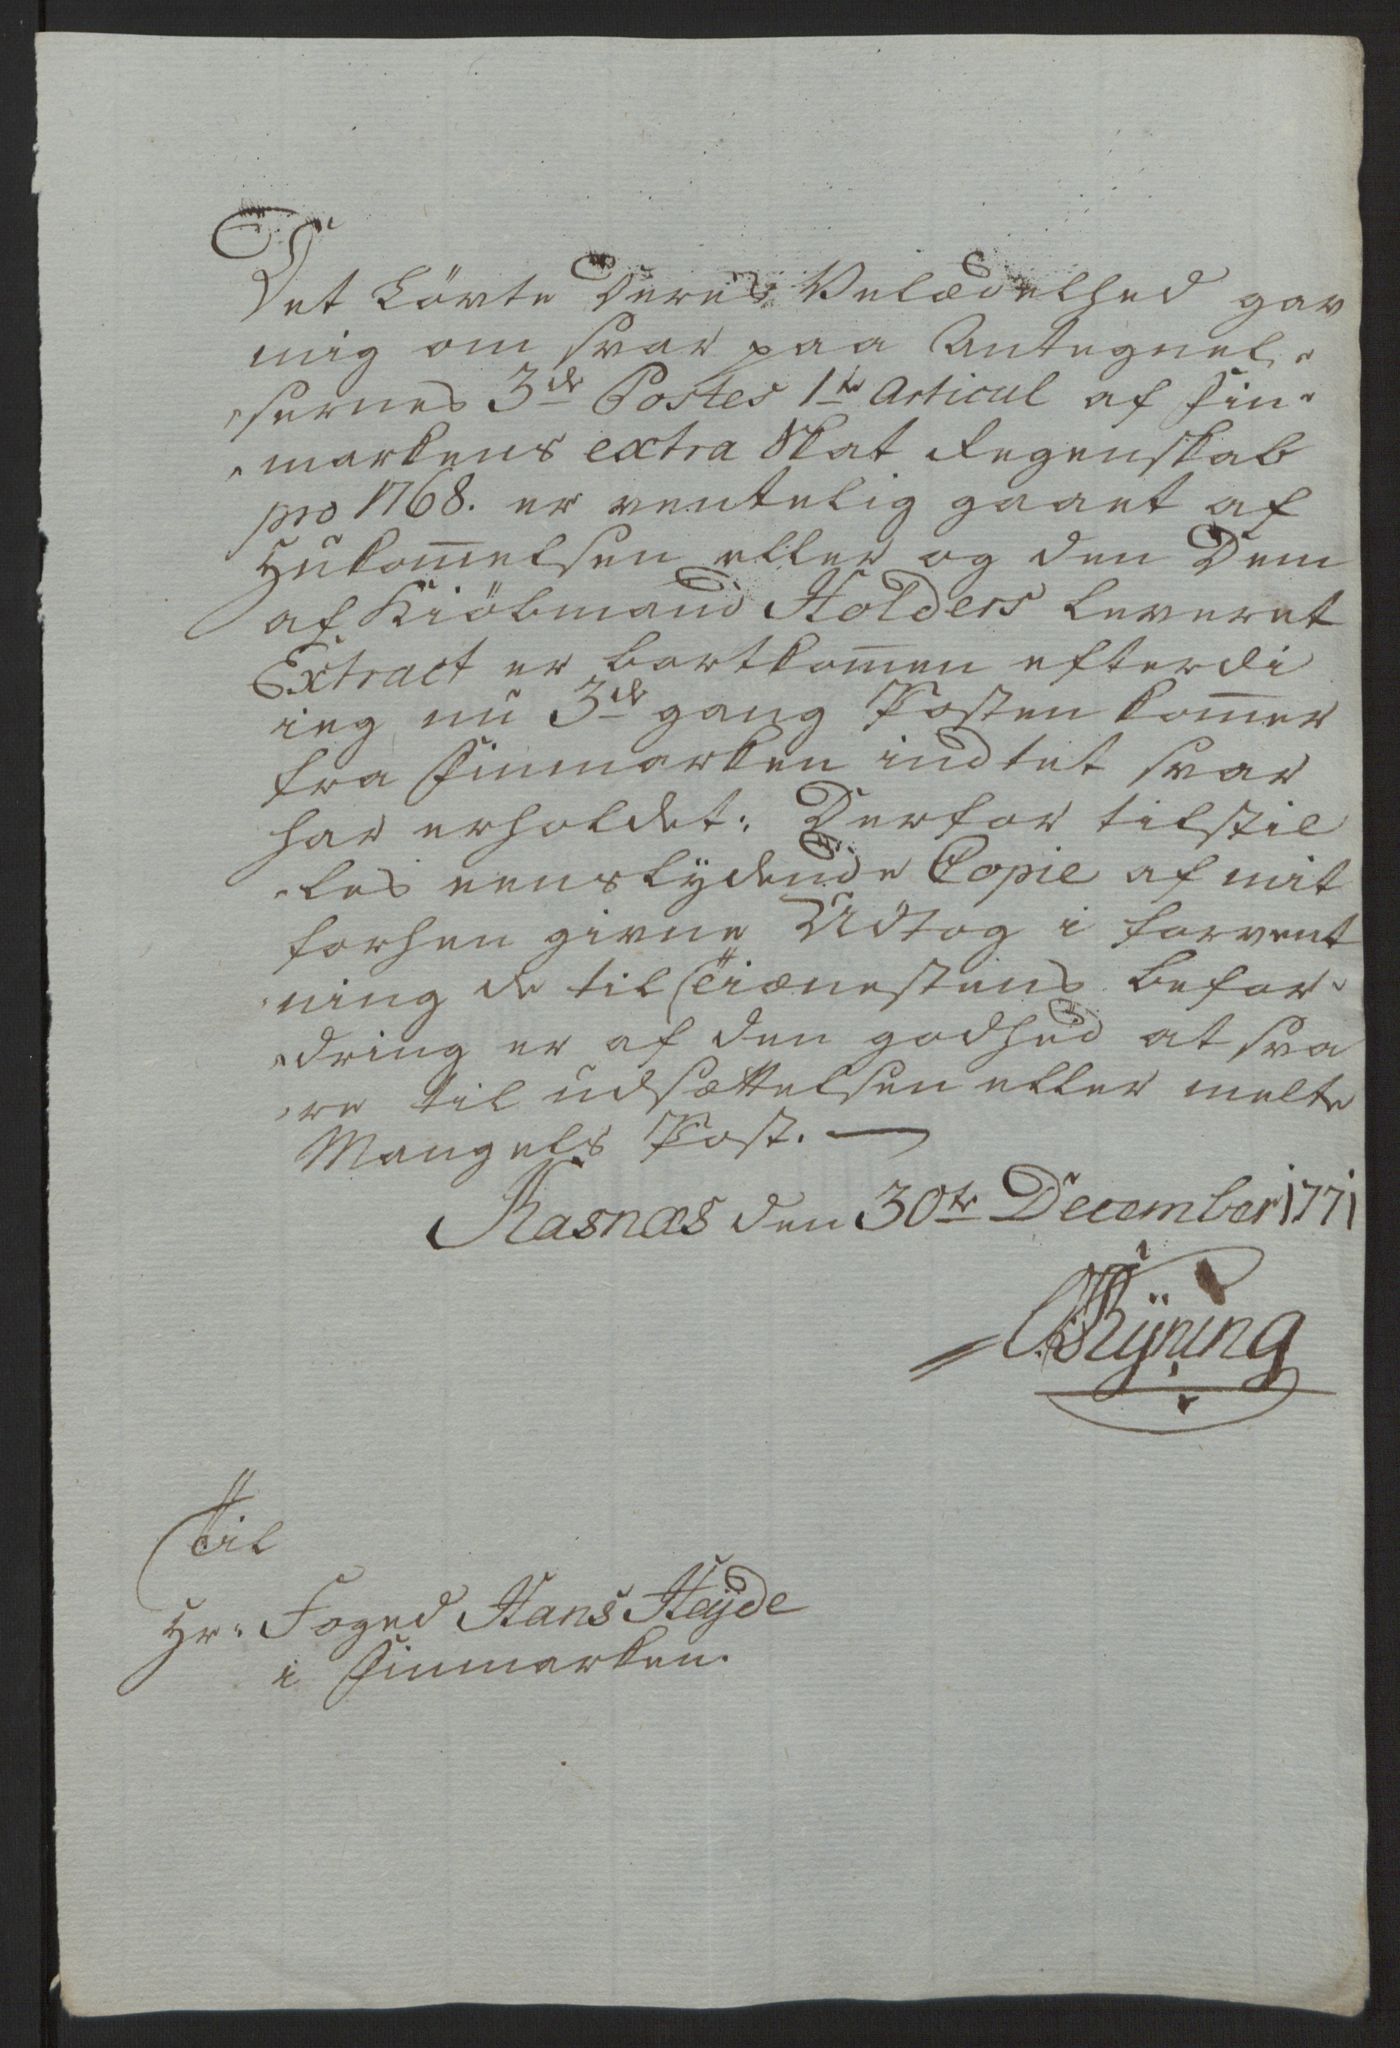 Det Løvte Deres Velædelhed gav
mig om svar paa Antegnel-
sernes 3de Postes 1te Articul af Fin-
markens extra Skat Regenskab
pro 1768. er ventelig gaaet af
Hukom̄elsen eller og den Dem
af Kiöbmand Holders leveret
Extract er bortkom̄en efterdi
ieg nu 3de gang Posten kom̄er
fra Finmarken indtet svar
har erholdet: Derfor tilstil
-les eenslÿdende Copie af mit
forhen givne Udtog i forvent
-ning de til Tiænestens befor-
-dring er af den godhed at sva
-re til udsættelsen eller melte
Mangels Post. —
Rasnæs den 30te December 1771
Rÿning
Til
Hr. Foged Hans Heÿde
i Finmarken.